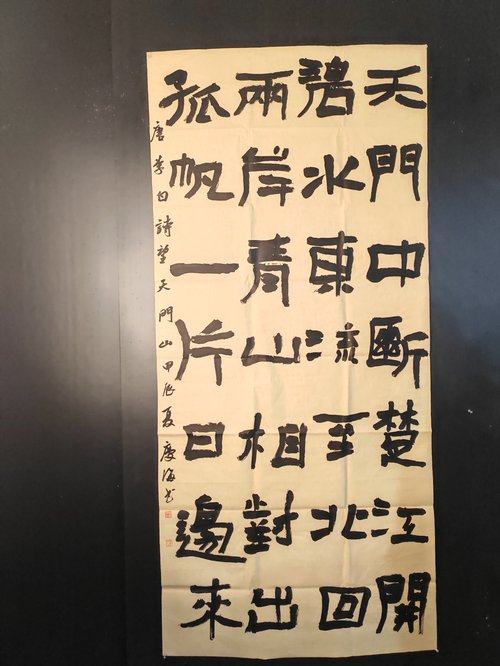 天門中斷楚江開
碧水東流至北回
兩岸青山相對出
孤帆一片日邊來
唐李白詩望天門山甲辰夏慶海书